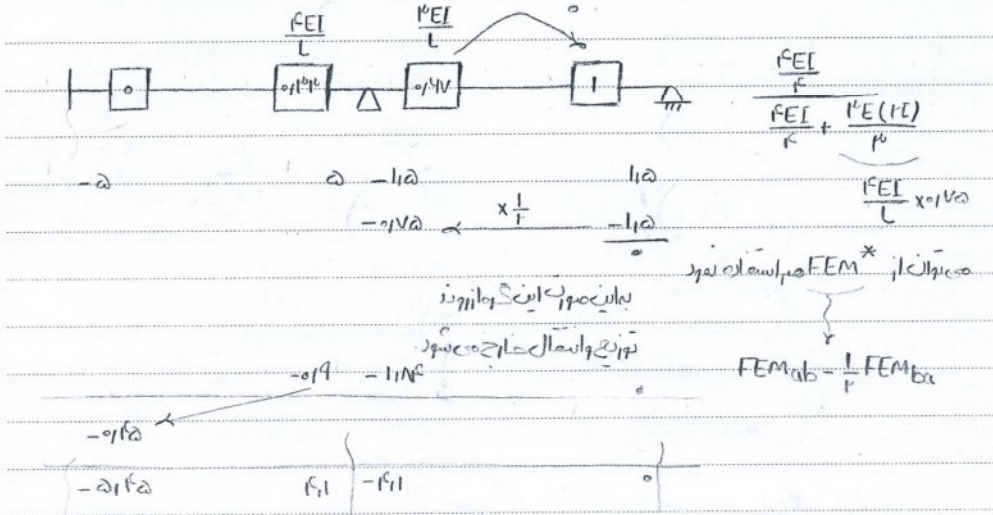 ۴EI/L ۳EI/L ۰
۰ ۰,۳۳ ۰,۶۷ ۱
۴EI/۴ / (۴EI/۴ + ۳E(۲I)/۳)
-۵ ۵ -۱,۵ ۱,۵
۴EI/L ×۰,۷۵
-۰,۷۵ ×۱/۲ -۱,۵
۰
می‌توان از FEM* هم استفاده نمود
به این صورت این گره از روند
توزیع و انتقال خارج می‌شود
FEMab - ۱/۲ FEMba
-۰,۹ -۱,۸۴ ۰
-۰,۴۵
-۵,۴۵ ۴,۱ -۴,۱ ۰